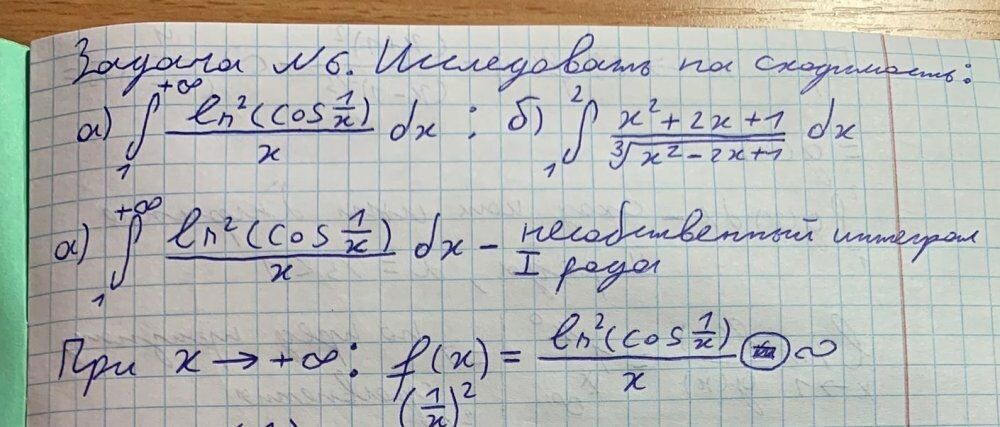 Задача №6. Исследовать на сходимость:
а) ∫₁^{+∞} ln²(cos 1/x)/x dx ; б) ∫₁² (x²+2x+1)/∛(x²-2x+1) dx
а) ∫₁^{+∞} ln²(cos 1/x)/x dx – несобственный интеграл I рода
При x → +∞: f(x) = ln²(cos 1/x)/x ~
(1/x)²